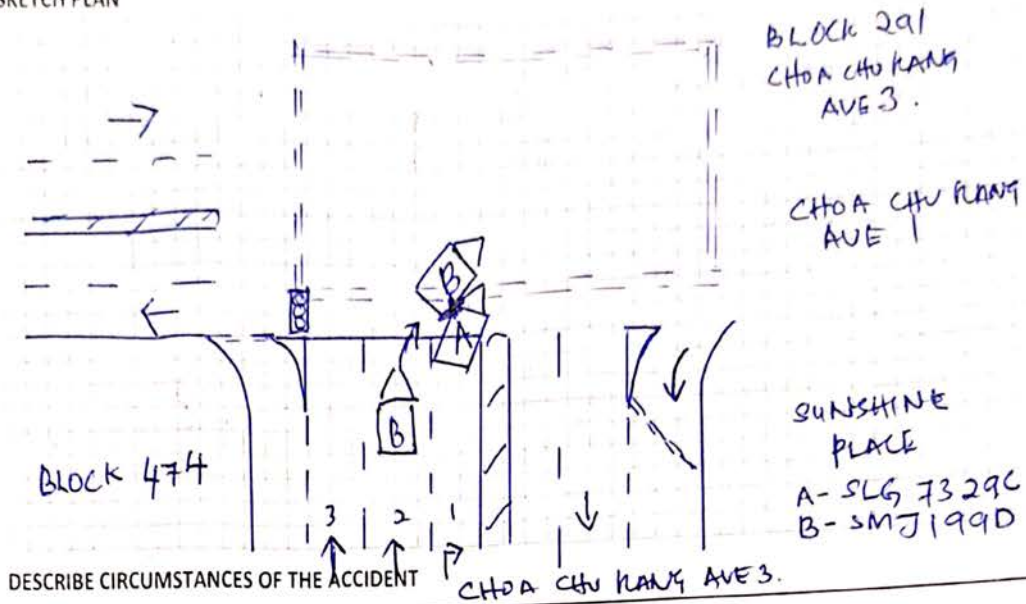 SKETCH PLAN
BLOCK 291
CHOA CHU KANG
AVE 3.
CHOA CHU KANG
AVE 1
B
A
B
BLOCK 474
SUNSHINE
PLACE
A- SLG 7329C
B- SMJ 199D
3 2 1
DESCRIBE CIRCUMSTANCES OF THE ACCIDENT
CHOA CHU KANG AVE 3.